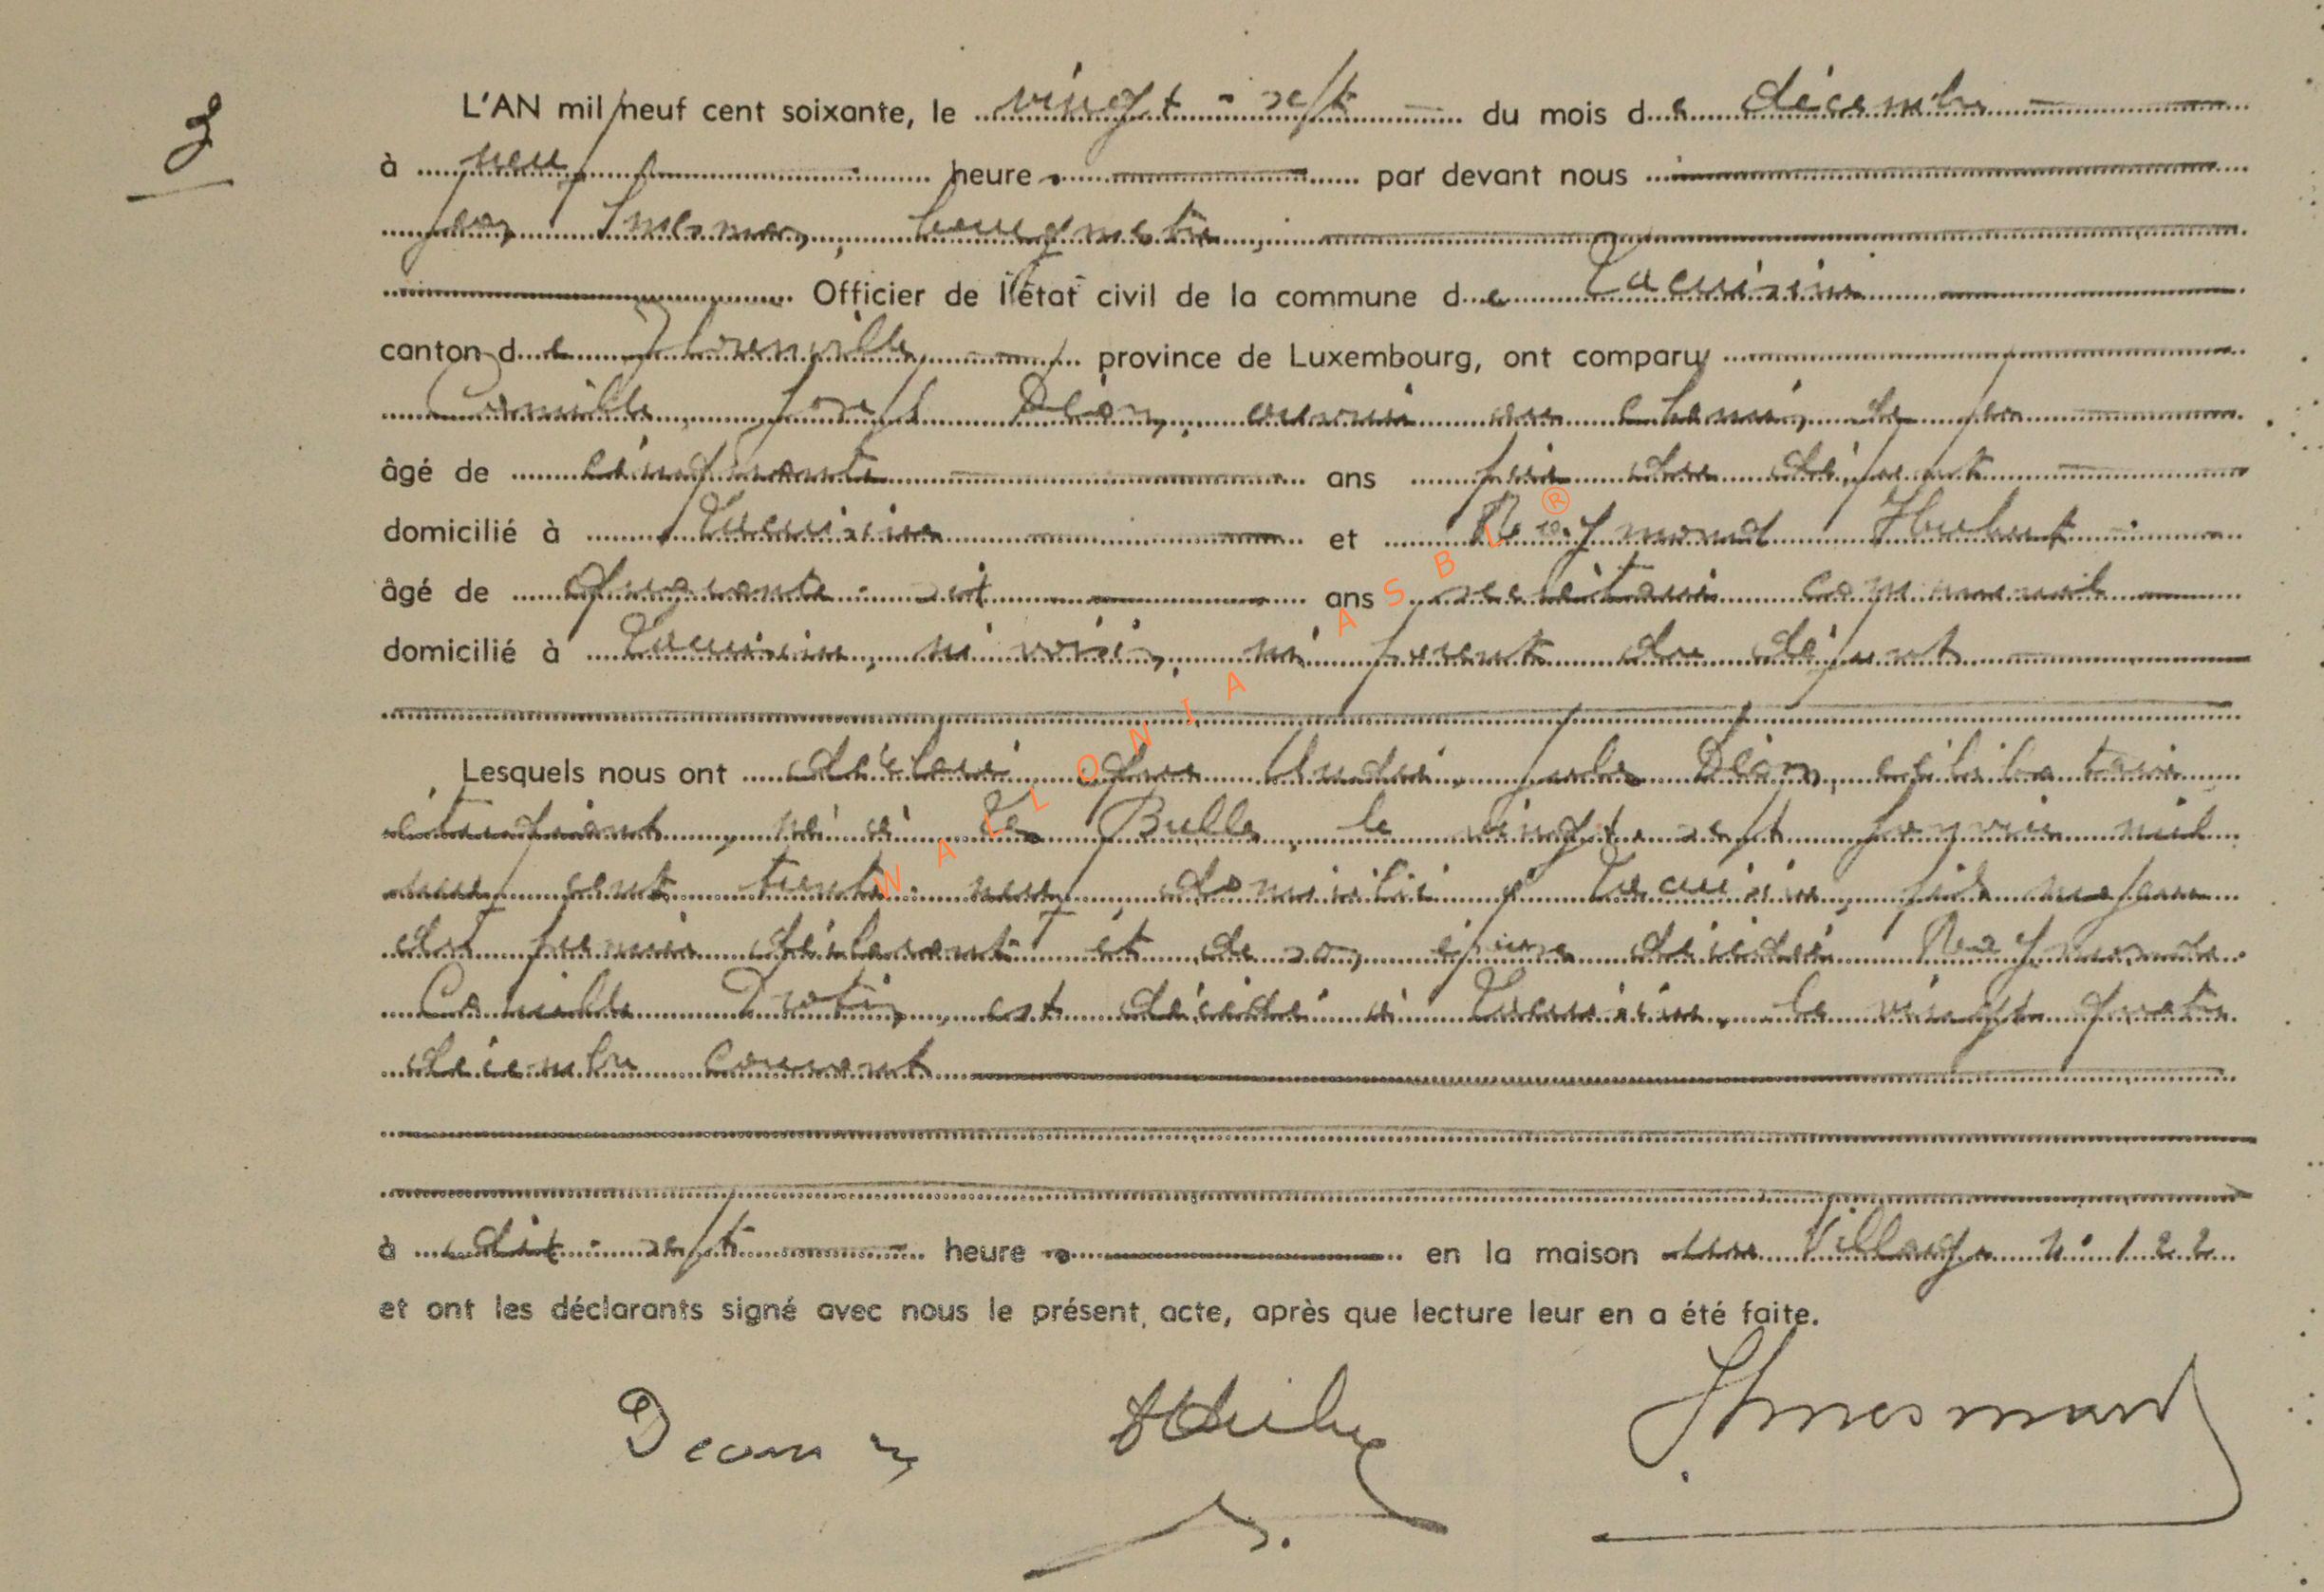 3
L'AN mil neuf cent soixante, le vingt-sept du mois de décembre
à neuf heures par devant nous
Jean Smesman, bourgmestre,
Officier de l'état civil de la commune de Lacuisine
canton de Florenville, province de Luxembourg, ont comparu
Camille Joseph Déom, ouvrier au chemin de fer
âgé de cinquante ans père du défunt
domicilié à Lacuisine et Raymond Hubert
âgé de quarante-six ans secrétaire communal
domicilié à Lacuisine, ni voisin, ni parent du défunt
Lesquels nous ont déclaré que Jules Déom, célibataire
étudiant, né à Bulle, le vingt-sept janvier mil
neuf cent trente-neuf, domicilié à Lacuisine, fils majeur
du premier déclarant et de son épouse décédée Raymonde
Camille Protin, est décédé à Lacuisine, le vingt quatre
décembre courant
à dix-sept heures en la maison rue Village n° 122
et ont les déclarants signé avec nous le présent acte, après que lecture leur en a été faite.
WALLONIA ASBL ®